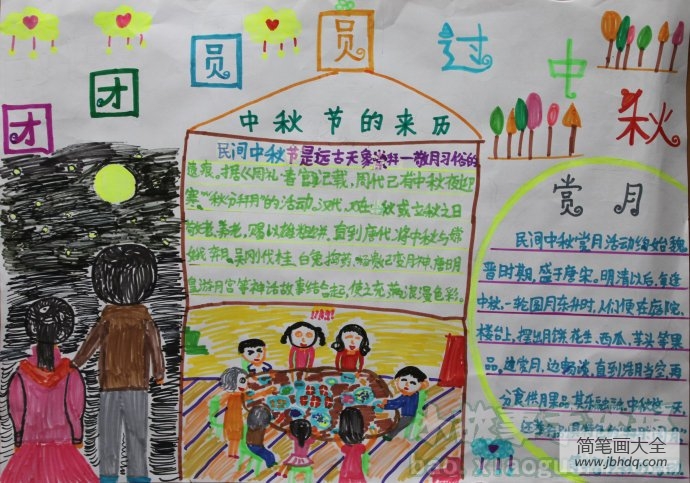 团团圆圆过中秋
中秋节的来历
民间中秋节是远古天象崇拜一敬月习俗的
遗痕。据《周礼·春官》记载，周代已有中秋夜迎
寒""秋分拜月"的活动。汉代，又在
秋或立秋之日
敬老、养老，赐以雄粗饼。直到唐代，将中秋与嫦
娥奔月、吴刚伐桂、白兔捣药、
变月神、唐明
皇游月宫等神话故事结合起，使之充满浪漫色彩。
赏月
民间中秋赏月活动约始魏
晋时期，盛于唐宋。明清以后，每逢
中秋，一轮圆月东升时，人们便在庭院、
楼台上，摆出月饼、花生、西瓜、芋头等果
品。边赏月，边畅谈，直到皓月当空，再
分食供月果品，其乐融融。中秋这一天，
简笔画大全
www.jbhdq.com